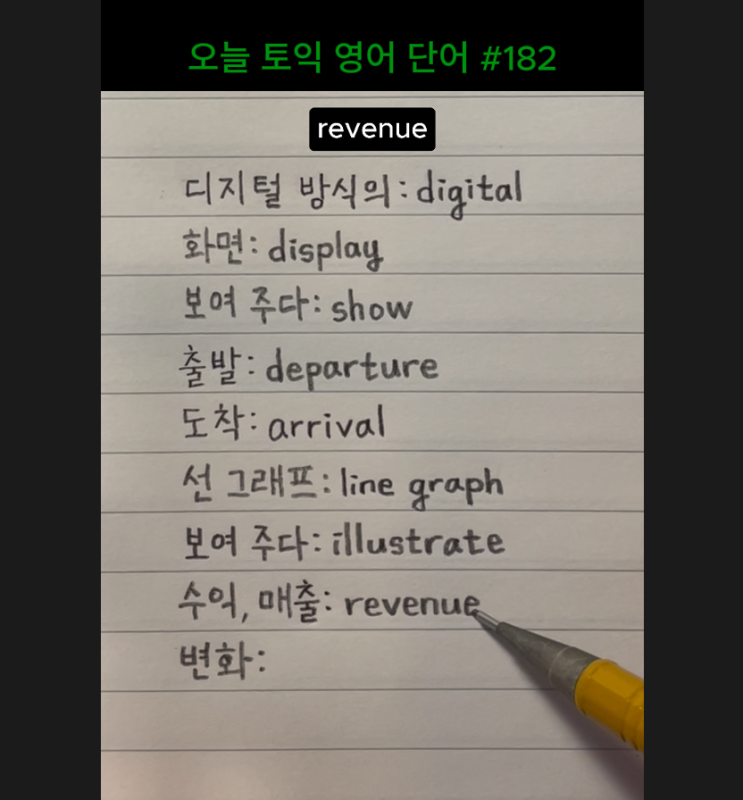 오늘 토익 영어 단어 #182
revenue
디지털 방식의: digital
화면: display
보여 주다: show
출발: departure
도착: arrival
선 그래프: line graph
보여 주다: illustrate
수익, 매출: revenue
변화: